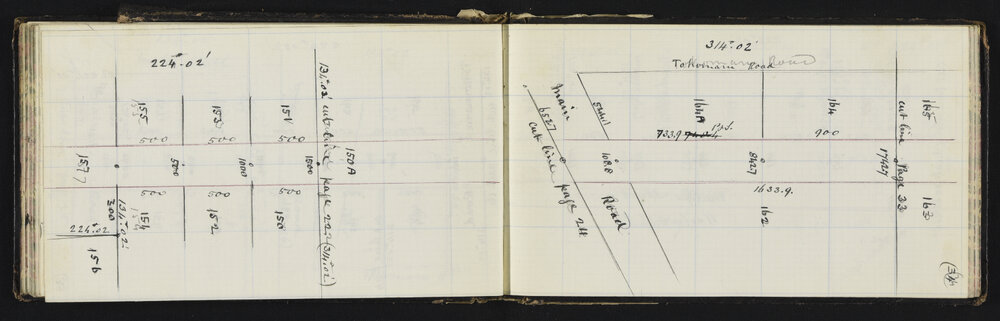 224°.02'
155
153
151
500
500
500
134°.02' cut line page 22 (314°.02')
150A
157
500
1000
1500
500
500
500
154
152
150
300
134°.02'
224°.02
156
314°.02'
Tokomaru Road
main
6527
cut line page 24
164A
164
165
733.9
900
cut line Page 33
108.8
8427
17427
1633.9
Road
162
163
34